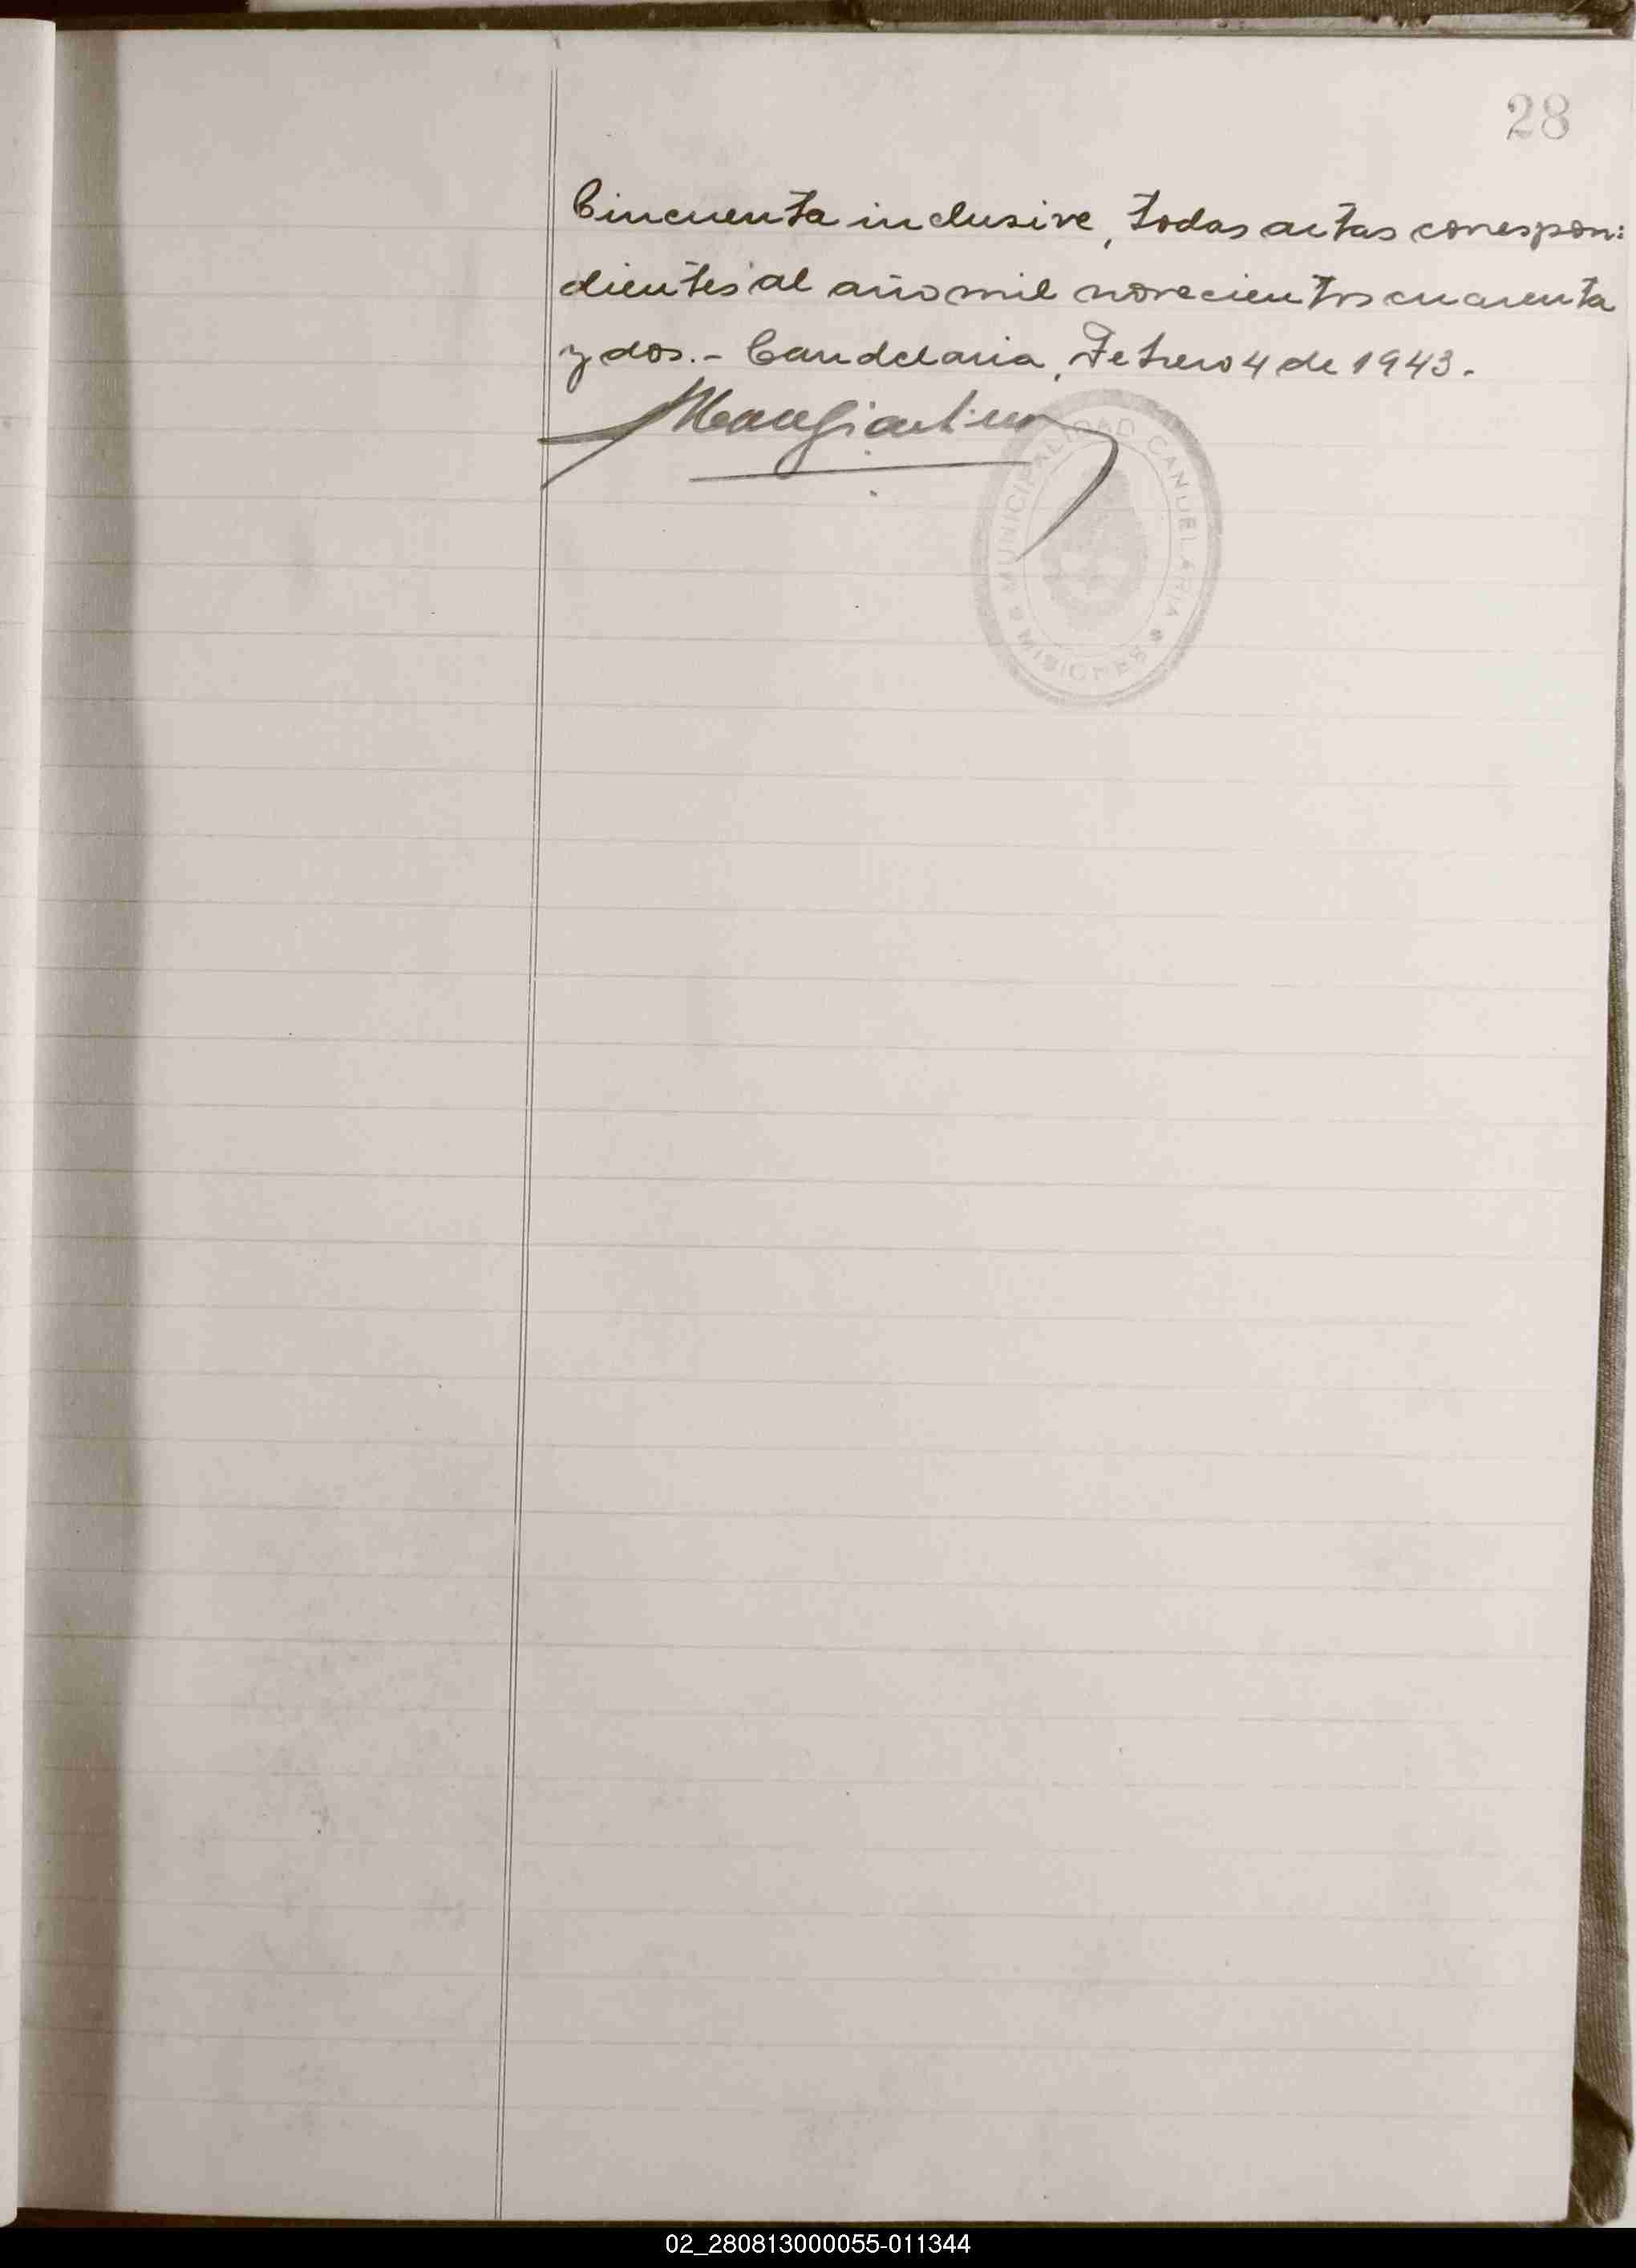 28
Cincuenta inclusive, todas actas correspon:
dientes al año mil novecientos cuarenta
y dos.- Candelaria, Febrero 4 de 1943.
MUNICIPALIDAD CANDELARIA
MISIONES
02_280813000055-011344